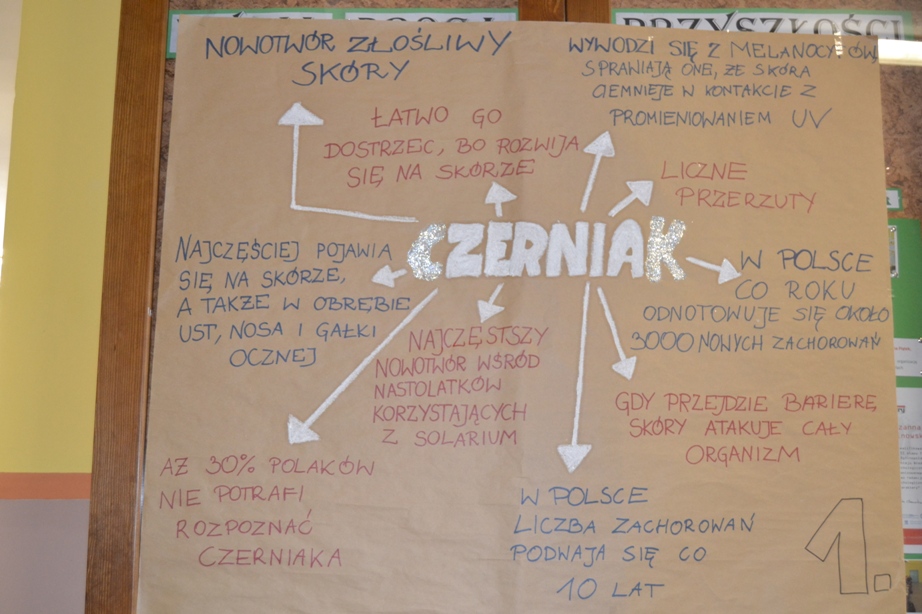 PRZYSZŁOŚCI
NOWOTWÓR ZŁOŚLIWY
SKÓRY
WYWODZI SIĘ Z MELANOCYTÓW,
SPRAWIAJĄ ONE, ŻE SKÓRA
CIEMNIEJE W KONTAKCIE Z
PROMIENIOWANIEM UV
ŁATWO GO
DOSTRZEC, BO ROZWIJA
SIĘ NA SKÓRZE
LICZNE
PRZERZUTY
CZERNIAK
NAJCZĘŚCIEJ POJAWIA
SIĘ NA SKÓRZE,
A TAKŻE W OBRĘBIE
UST, NOSA I GAŁKI
OCZNEJ
W POLSCE
CO ROKU
ODNOTOWUJE SIĘ OKOŁO
3000 NOWYCH ZACHOROWAŃ
NAJCZĘSTSZY
NOWOTWÓR WŚRÓD
NASTOLATKÓW
KORZYSTAJĄCYCH
Z SOLARIUM
GDY PRZEJDZIE BARIERĘ
SKÓRY ATAKUJE CAŁY
ORGANIZM
AŻ 30% POLAKÓW
NIE POTRAFI
ROZPOZNAĆ
CZERNIAKA
W POLSCE
LICZBA ZACHOROWAŃ
PODWAJA SIĘ CO
10 LAT
1.